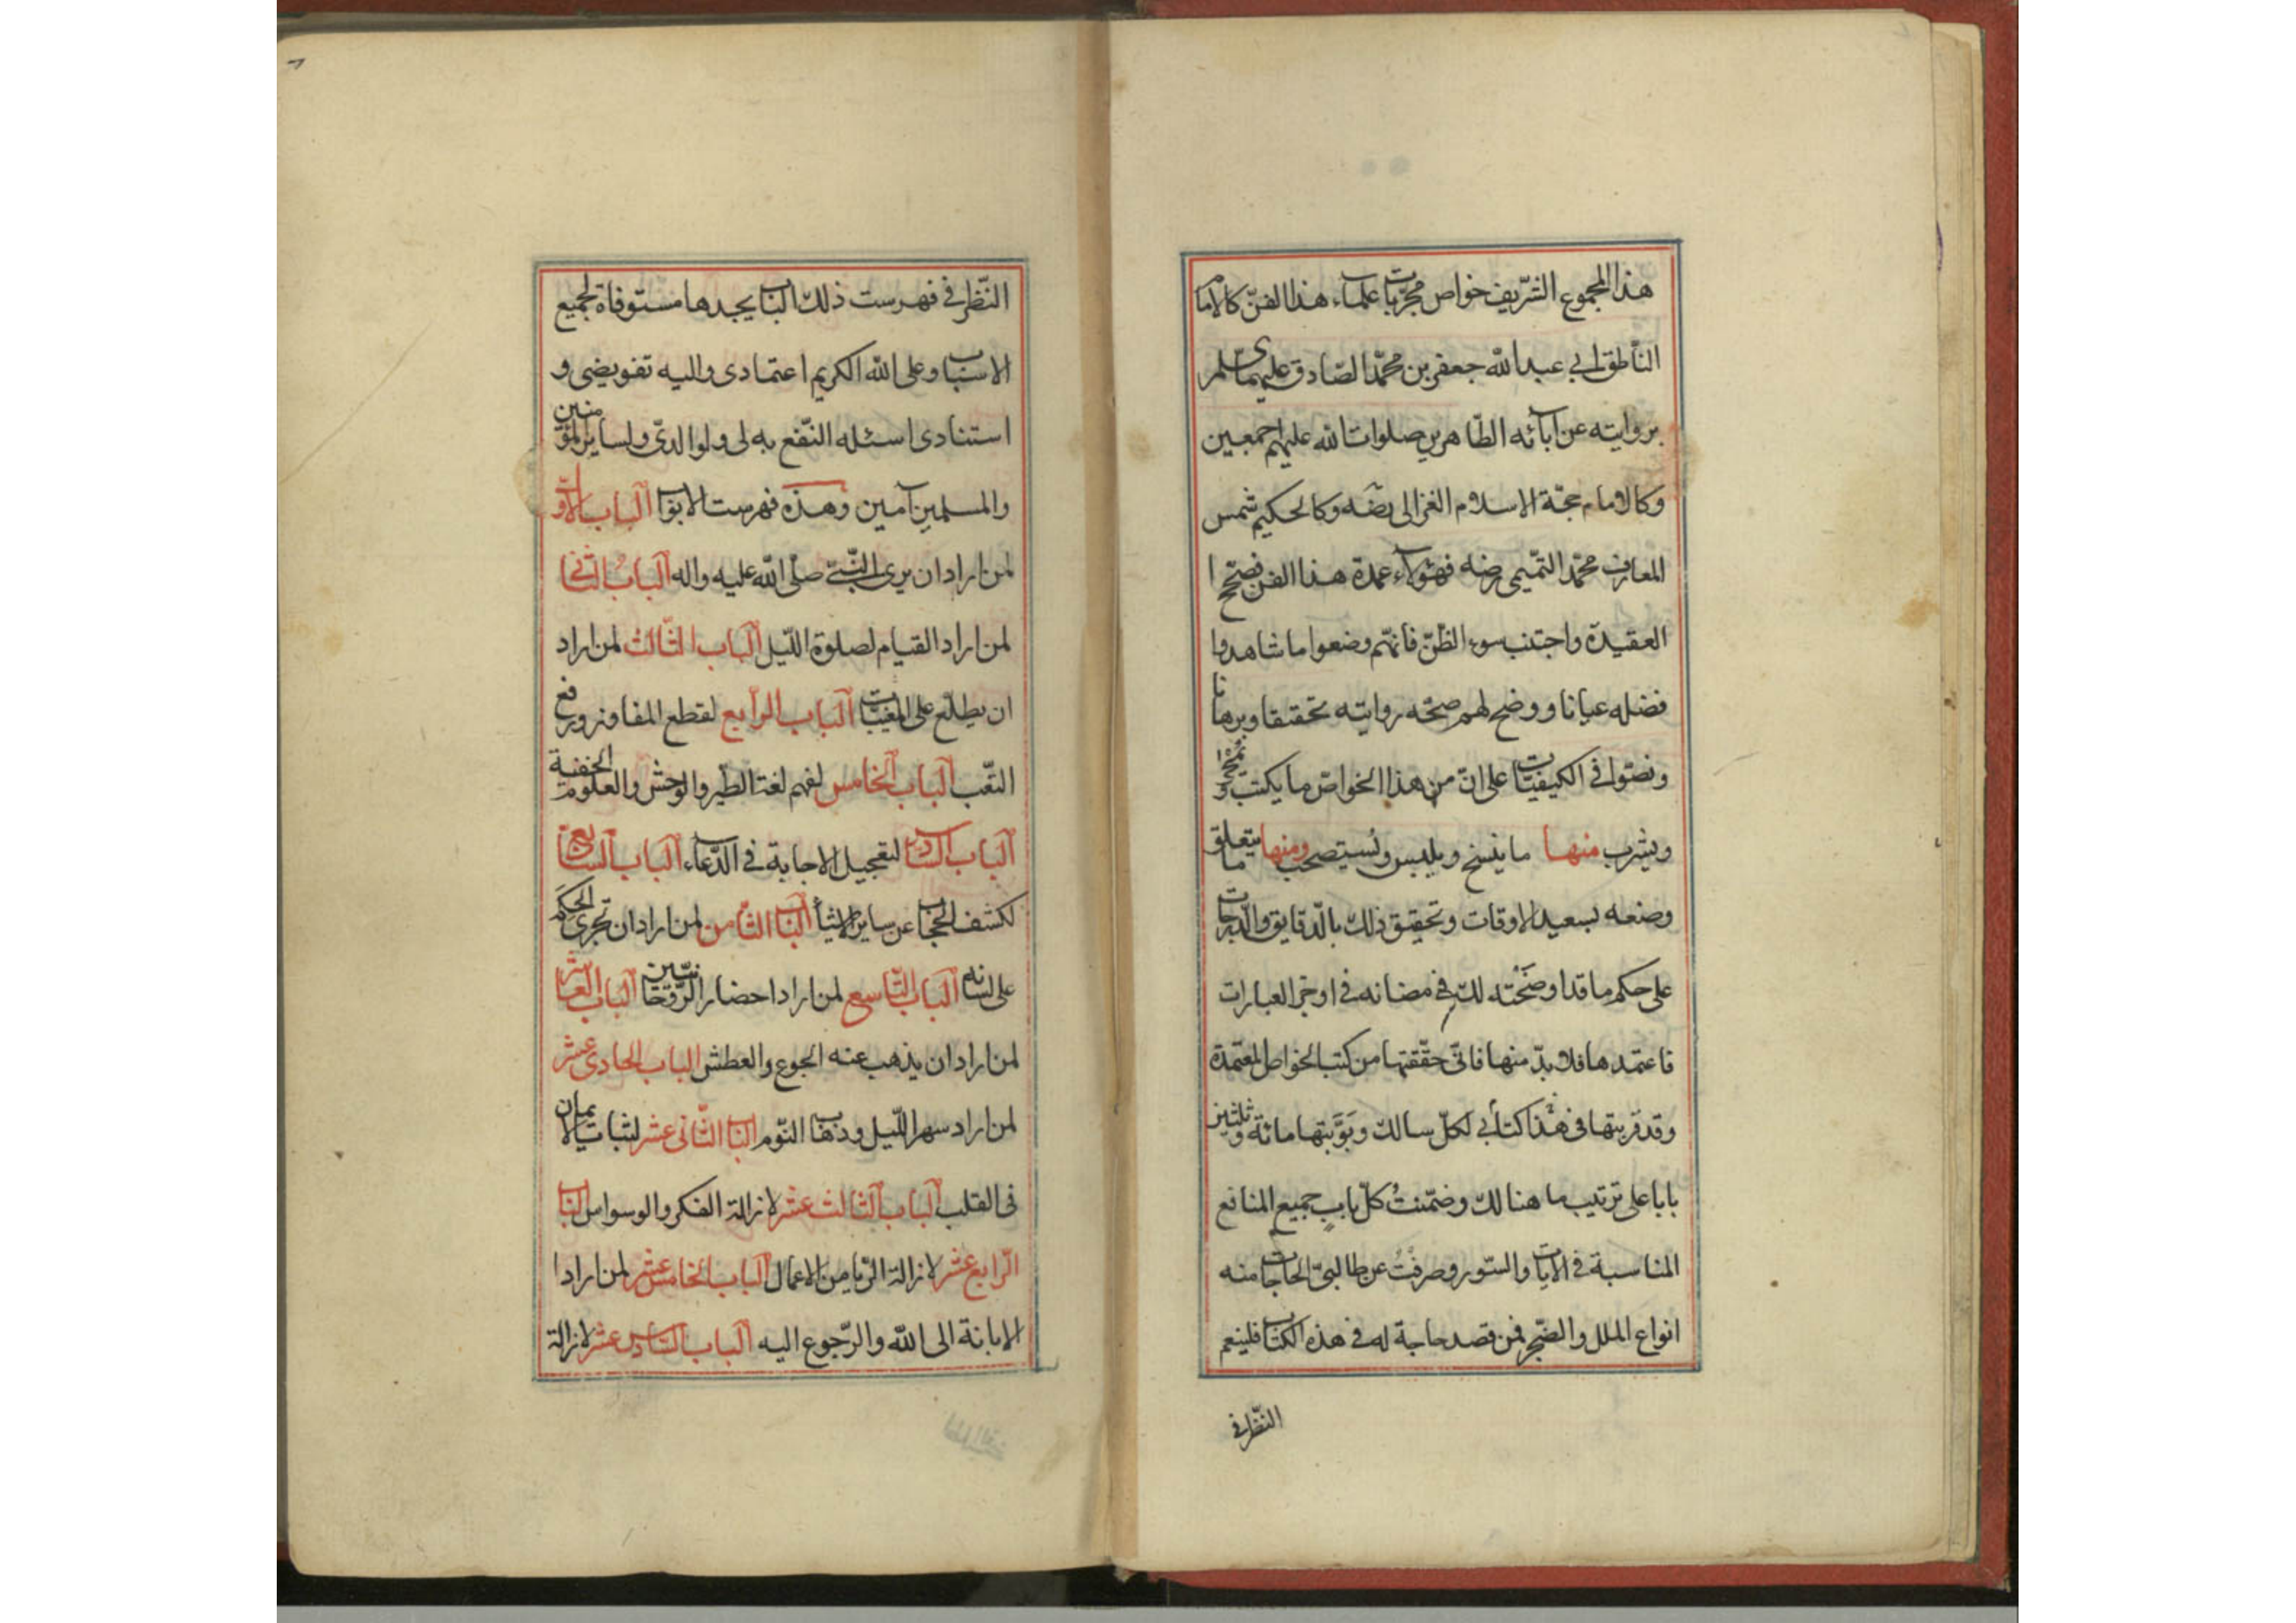 هذا المجموع الشّريف خواص مجرّبات علماء هذا الفنّ كالامام
النّاطق ابي عبد الله جعفر بن محمّد الصّادق عليهما
بروايته عن آبائه الطّاهرين صلوات الله عليهم اجمعين
وكالامام حجّة الاسلام الغزالى رضه وكالحكيم شمس
المعارف محمّد التّميمى رضه فهؤلاء عمدة هذا الفن فصحّح ا
العقيدة واجتنب سوء الظّنّ فانّهم وضعوا ما شاهدوا
فضله عيانا ووضح لهم صحّة روايته تحقيقا وبرهانا
ونصّوا في الكيفيّات على انّ من هذا الخواصّ ما يكتب
ويشرب منها ما ينسخ ويلبس ويُستصحب ومنها ما يتعلق
وضعه بسعيد الاوقات وتحقيق ذلك بالدّقايق والدّرجات
على حكم ما قد اوضَحْته لك في مضانه في اوجز العبارات
فاعتمدها فلا بدّ منها فانّى حقّقتها من كتب الخواص المعتمدة
وقد قربتها في هذا كتابي لكلّ سالك وبَوَّبتها مائة وثلثين
بابا على ترتيب ما هنالك وضمّنتُ كلّ بابٍ جميع المنافع
المناسبة في الآيات والسّور وصرفْتُ عن طالبىّ الحاجات منه
انواع الملل والضّجر فمن قصد حاجة له في هذه الكتاب فلينعم
النّظر في
النّظر في فهرست ذلك الباب يجدها مستوفاة لجميع
الاسباب وعلى الله الكريم اعتمادى واليه تفويضى و
استنادى اسئله النّفع به لى ولوالدىّ ولساير المؤمنين
والمسلمين آمين وهذه فهرست الابواب الباب الاوّل
لمن اراد ان يرى النّبىّ صلّى الله عليه واله البابُ الثّانى
لمن اراد القيام لصلوة اللّيل الباب الثّالث لمن اراد
ان يطّلع على المغيّبات الباب الرّابع لقطع المفاوز ورفع
التّعب الباب الخامس لفهم لغة الطّير والوحش والعلوم الخفية
الباب السّادس لتعجيل الاجابة في الدّعاء الباب السّابع
لكشف الحجاب عن ساير الاشياء الباب الثّامن لمن اراد ان تجرى الحكم
على لسانه الباب التّاسع لمن اراد احضار الرّوحانيّين الباب العاشر
لمن اراد ان يذهب عنه الجوع والعطش الباب الحادى عشر
لمن اراد سهر اللّيل وذهاب النّوم الباب الثّانى عشر لثبات الايمان
فى القلب الباب الثالث عشر لازالة الفكر والوسواس الباب
الرّابع عشر لازالة الرّيا من الاعمال الباب الخامس عشر لمن اراد ا
الانابة الى الله والرّجوع اليه الباب السّادس عشر لازالة